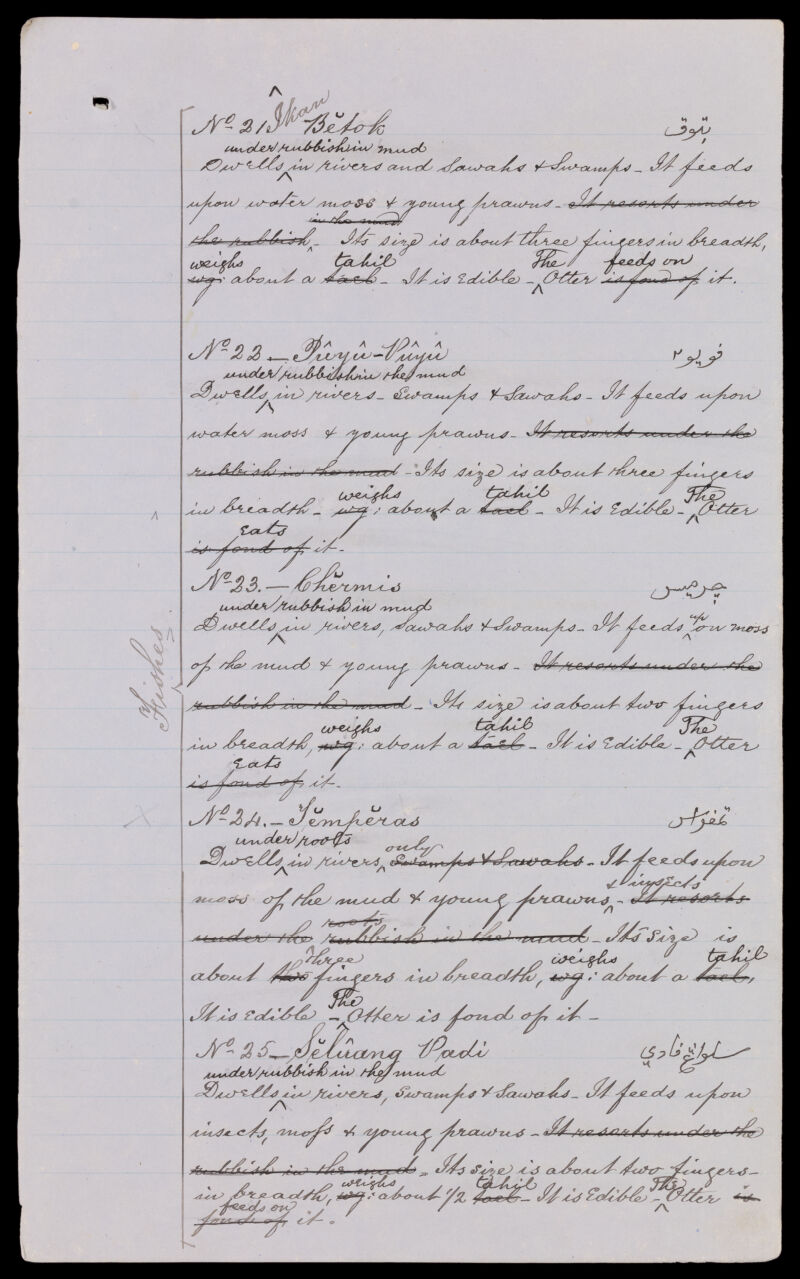 Ikan
No 21 ^ Bĕtok بتوق
under rubbish in mud
Dwells ^ in rivers and Sawahs & Swamps - It feeds
upon water moss & young prawns - It resorts under
in the mud
the rubbish ^ - Its size is about three fingers in breadth,
weighs tahil The feeds on
wg: about a tael - It is Edible - ^ Otter is fond of it.
No 22 - Pûyû-Pûyû ڤويو ٢
under rubbish in the mud
Dwells ^ in rivers - Swamps & Sawahs - It feeds upon
water moss & young prawns - It resorts under the
rubbish in the mud - Its size is about three fingers
weighs tahil The
in breadth - wg: about a tael - It is Edible - ^ Otter
Eats
is fond of it -
No 23. - Chĕrmis چرميس
under rubbish in mud
Dwells ^ in rivers, Sawahs & Swamps - It feeds ^up on moss
of the mud & young prawns - It resorts under the
Fishes
rubbish in the mud - Its size is about two fingers
weighs tahil The
in breadth, wg: about a tael - It is Edible - ^ Otter
Eats
is fond of it -
No 24. - Tĕmpĕras تمفراس
under roots only
Dwells ^ in rivers, ^ Swamps & Sawahs - It feeds upon
& insects
moss of the mud & young prawns ^ - It resorts
roots
under the rubbish in the mud - Its size is
Three weighs tahil
about two fingers in breadth, wg: about a tael,
The
It is Edible - ^ Otter is fond of it -
No 25 - Sĕlûang Padi سلواڠ ڤادي
under rubbish in the mud
Dwells ^ in rivers, Swamps & Sawahs - It feeds upon
insects, moss & young prawns - It resorts under the
rubbish in the mud - Its size is about two fingers -
weighs tahil The
in breadth, wg: about 1/2 tael - It is Edible - ^ Otter is
feeds on
fond of it.